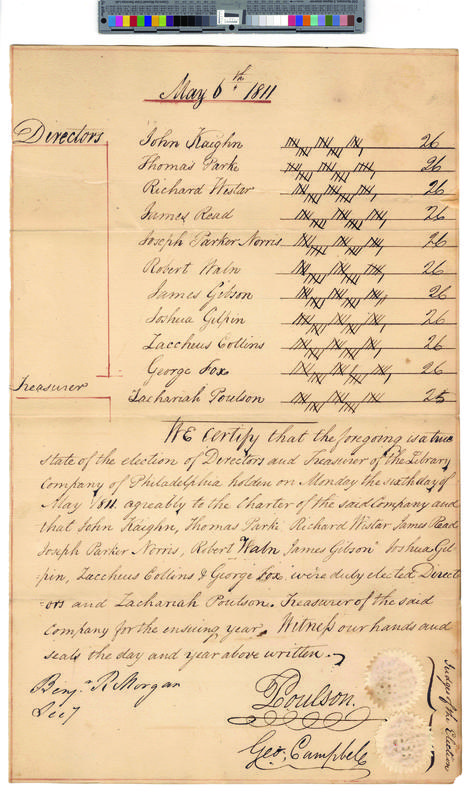 May 6th 1811
Directors
John Kaighn 26
Thomas Parke 26
Richard Wistar 26
James Read 26
Joseph Parker Norris 26
Robert Waln 26
James Gibson 26
Joshua Gilpin 26
Zaccheus Collins 26
George Fox 26
Treasurer
Zachariah Poulson 25
WE certify that the foregoing is a true
state of the election of Directors and Treasurer of the Library
Company of Philadelphia holden on Monday the sixth day of
May 1811 agreably to the Charter of the said Company and
that John Kaighn, Thomas Parke Richard Wistar James Read
Joseph Parker Norris, Robert Waln James Gibson Joshua Gil-
-pin, Zaccheus Collins & George Fox were duly elected Direct
-ors and Zachariah Poulson. Treasurer of the said
Company for the ensuing year. Witness our hands and
seals the day and year above written.
Benja. R. Morgan
Secy
Poulson.
Geo. Campbell
Judges of the Election